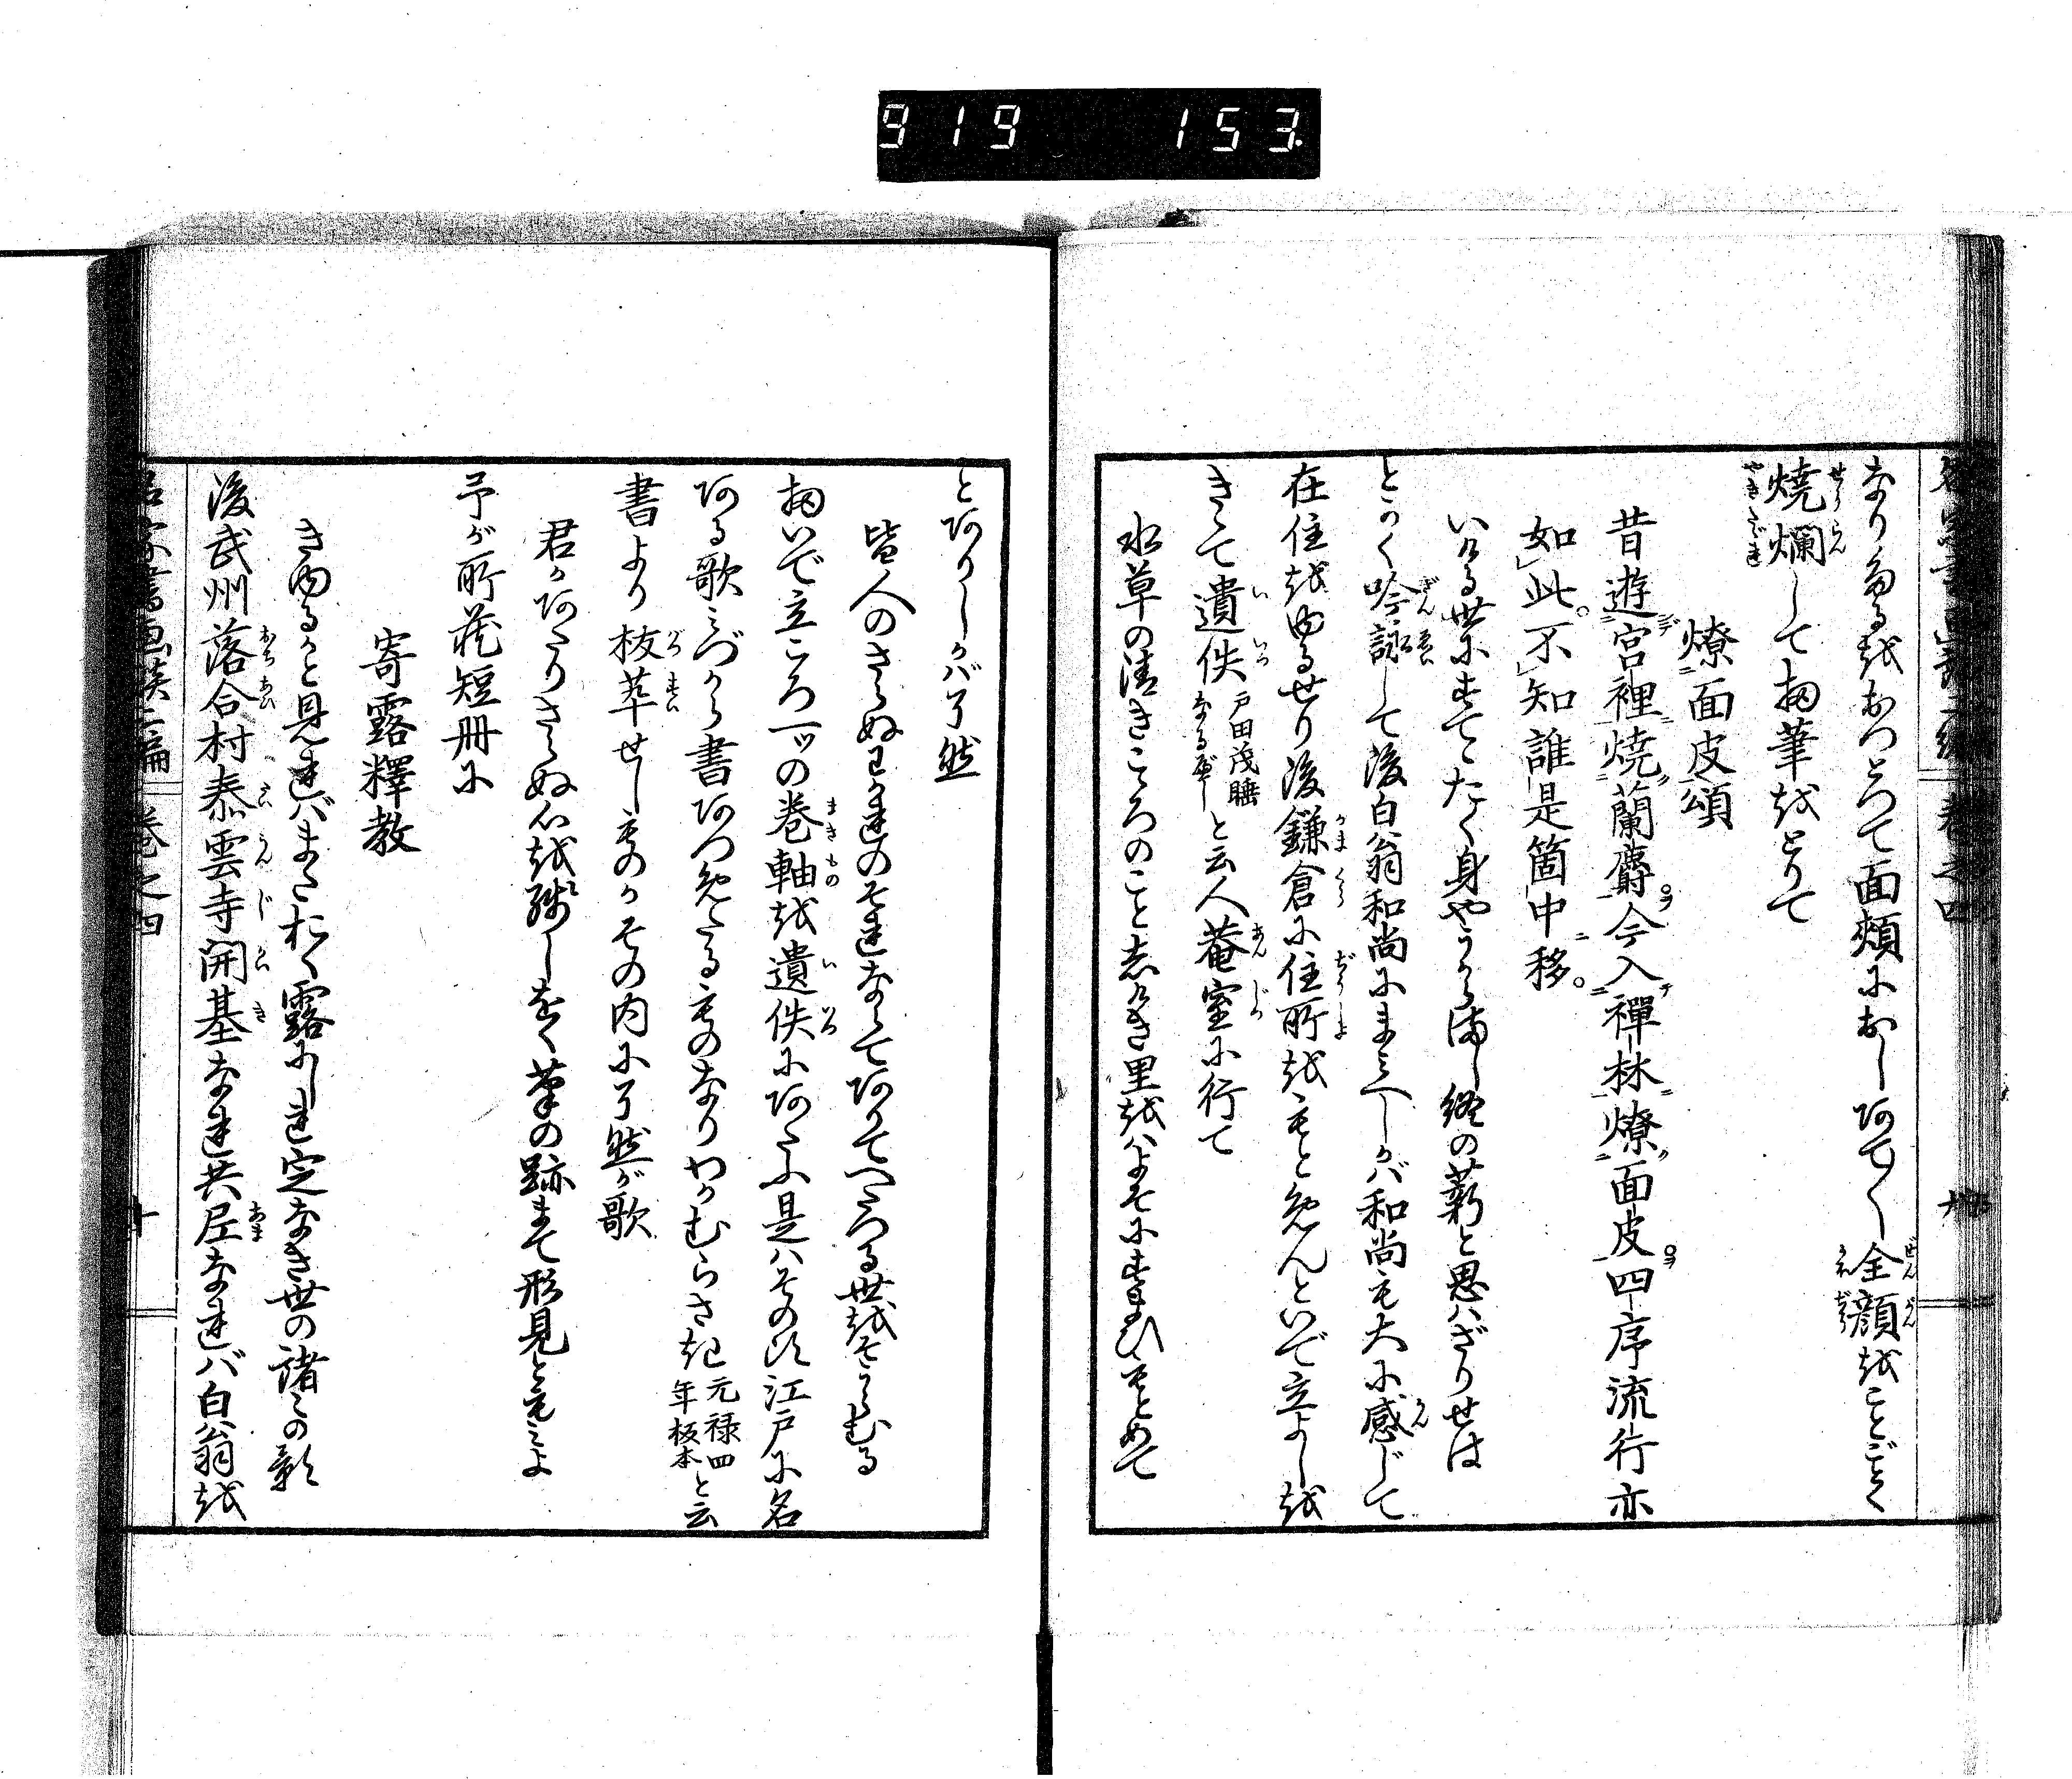 919 153
なりたるをおつとつて面頬におしあて〳〵全顔をことごとく
焼爛して扨筆をとりて
燎面皮頌
昔遊宮裡焼蘭麝今入禅林燎面皮四序流行亦
如此不知誰是箇中移
いける世にすてゝたく身やうからまし終の薪と思はざりせは
とかく吟詠して後白翁和尚にまみへしかば和尚も大に感じて
在住をゆるせり後鎌倉に住所をもとめんといで立よしを
きゝて遺佚戸田茂睡なるべしと云人菴室に行て
水草の清きこゝろのことしけき里をばよそにすまひもとめて
とありしかバ了然
皆人のさらぬわかれのそれならてありてへたつる世をそうらむる
扨いで立ころ一ツの巻軸を遺佚にあたふ是ハその頃江戸に名
ある歌ミづから書あつめたるものなりわかむらさき元禄四年板本と云
書より抜萃せしものかその内に了然が歌
君かあたりさらぬ心を残しをく筆の跡まて形見ともみよ
予が所蔵短冊に
寄露釋教
きゆるかと見ればまたおく露にしれ定なき世の諸々の影
後武州落合村泰雲寺開基なれ共尼なればバ白翁を
名家書画談二編 巻之四 十